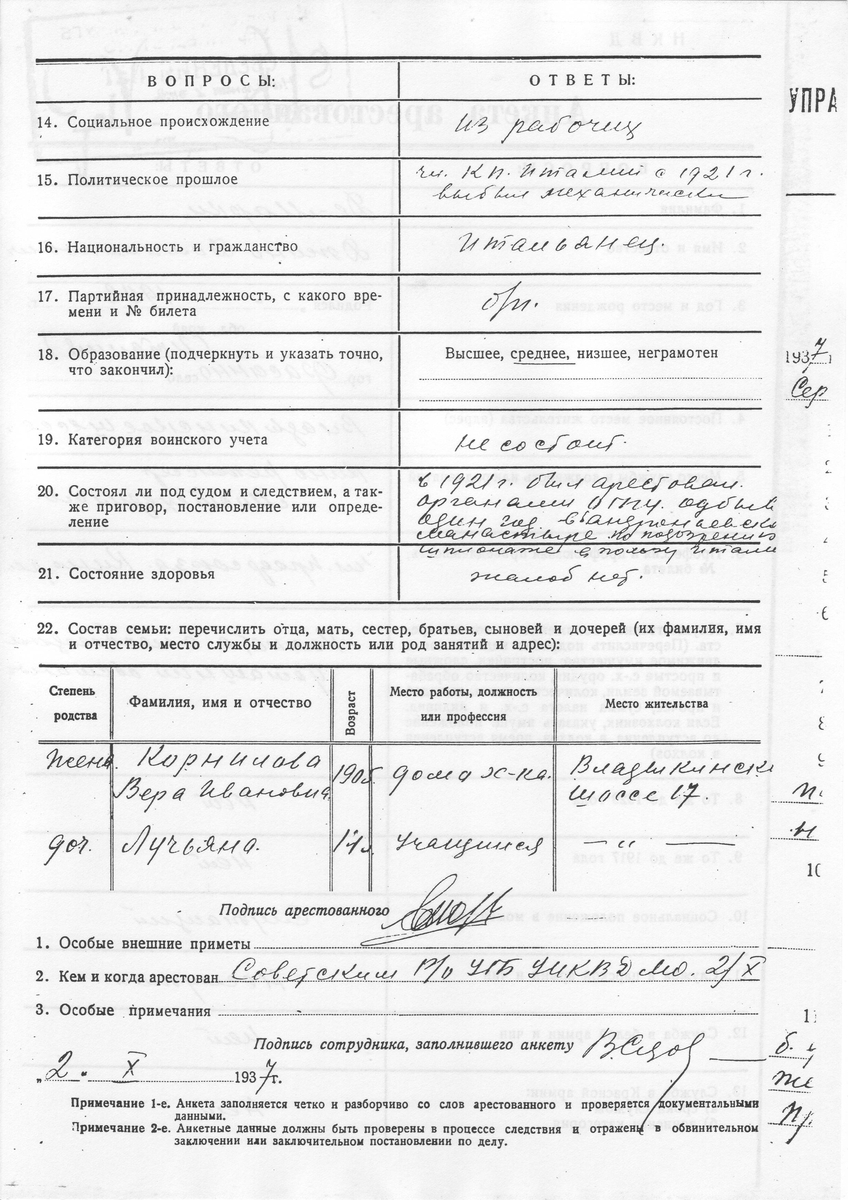 ВОПРОСЫ: ОТВЕТЫ:
14. Социальное происхождение
из рабочих
15. Политическое прошлое
чл. К.П. Италии с 1921 г.
выбыл механически
16. Национальность и гражданство
Итальянец.
17. Партийная принадлежность, с какого вре-
мени и № билета
б/п.
18. Образование (подчеркнуть и указать точно,
что закончил):
Высшее, среднее, низшее, неграмотен
19. Категория воинского учета
не состоит.
20. Состоял ли под судом и следствием, а так-
же приговор, постановление или опреде-
ление
в 1921 г. был арестован
органами ОГПУ отбыв
один год в Андрониевском
монастыре по подозрению
шпионаже в пользу Итали
21. Состояние здоровья
жалоб нет.
22. Состав семьи: перечислить отца, мать, сестер, братьев, сыновей и дочерей (их фамилия, имя
и отчество, место службы и должность или род занятий и адрес):
Степень родства
Фамилия, имя и отчество
Возраст
Место работы, должность или профессия
Место жительства
жена Корнилова 1905 дома х-ка. Владыкинск
Вера Ивановна шоссе 17.
доч. Лучьяна. 14 л учащийся — " —
Подпись арестованного
1. Особые внешние приметы
2. Кем и когда арестован Советским Р/о УГБ УНКВД МО. 2/X
3. Особые примечания
Подпись сотрудника, заполнившего анкету
„2" X 1937 г.
Примечание 1-е. Анкета заполняется четко и разборчиво со слов арестованного и проверяется документальными
данными.
Примечание 2-е. Анкетные данные должны быть проверены в процессе следствия и отражены в обвинительном
заключении или заключительном постановлении по делу.
УПРА
1937
Сер